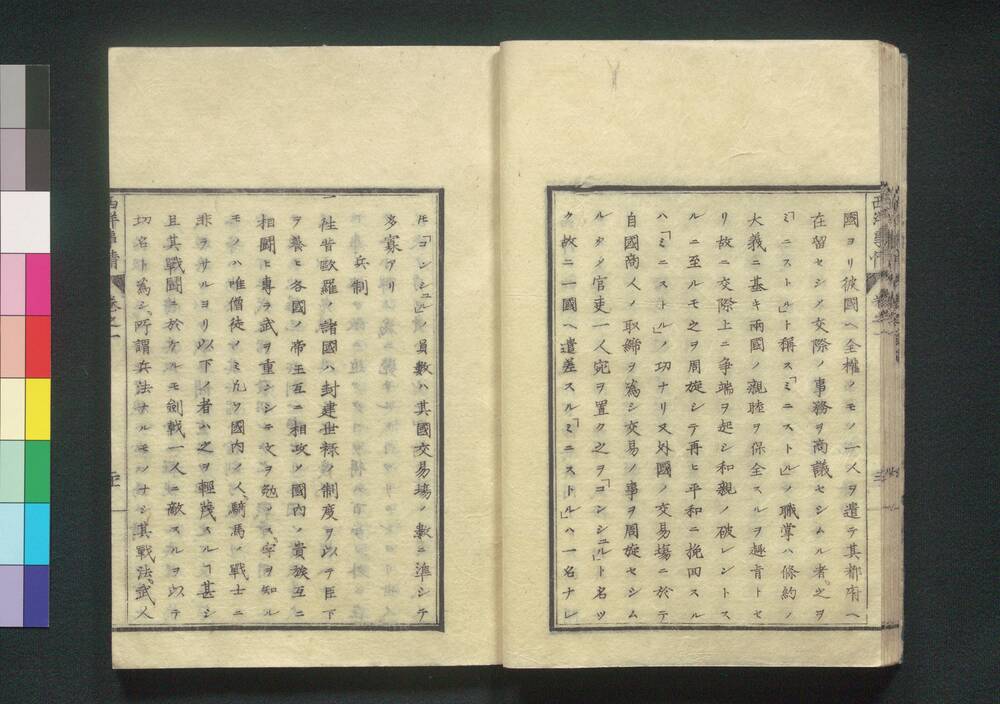 國ヨリ彼國ヘ全權ノモノ一人ヲ遣テ其都府ヘ
在留セシメ交際ノ事務ヲ商議セシムル者之ヲ
「ミニストル」ト稱ス「ミニストル」ノ職掌ハ條約ノ
大義ニ基キ兩國ノ親睦ヲ保全スルヲ趣旨トセ
リ故ニ交際上ニ爭端ヲ起シ和親ノ破レントス
ルニ至ルモ之ヲ周旋シテ再ヒ平和ニ挽回スル
ハ「ミニストル」ノ功ナリ又外國ノ交易塲ニ於テ
自國商人ノ取締ヲ爲シ交易ノ事ヲ周旋セシム
ルタメ官吏一人宛ヲ置ク之ヲ「コンシュル」ト名ツ
ク故ニ一國ヘ遣差スル「ミニストル」ハ一名ナレ
𪜈「コンシュル」ノ員數ハ其國交易塲ノ數ニ準シテ
多寡アリ
兵制
一 往昔歐羅ノ諸國ハ封建世禄ノ制度ヲ以テ臣下
ヲ養ヒ各國ノ帝王互ニ相攻メ國内ノ貴族互ニ
相鬪ヒ專ラ武ヲ重ンシテ文ヲ勉メス字ヲ知ル
モノハ唯僧徒ノミ凡ソ國内ノ人騎馬ノ戰士ニ
非ラサルヨリ以下ノ者ハ之ヲ輕蔑スルヿ甚シ
且其戰鬪ニ於ケルモ劍戰一人ニ敵スルヲ以テ
功名ト爲シ所謂兵法ナルモノナシ其戰法武人
西洋事情
卷之一